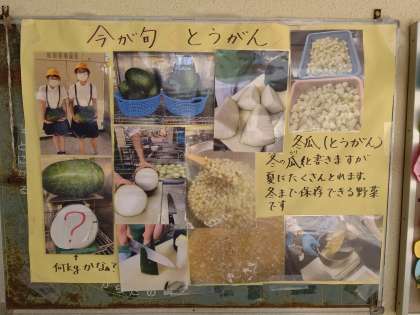 今が旬 とうがん
冬瓜(とうがん)
冬の瓜と書きますが
夏にたくさんとれます。
冬まで保存できる野菜
です
?
↑
何kgかなぁ?